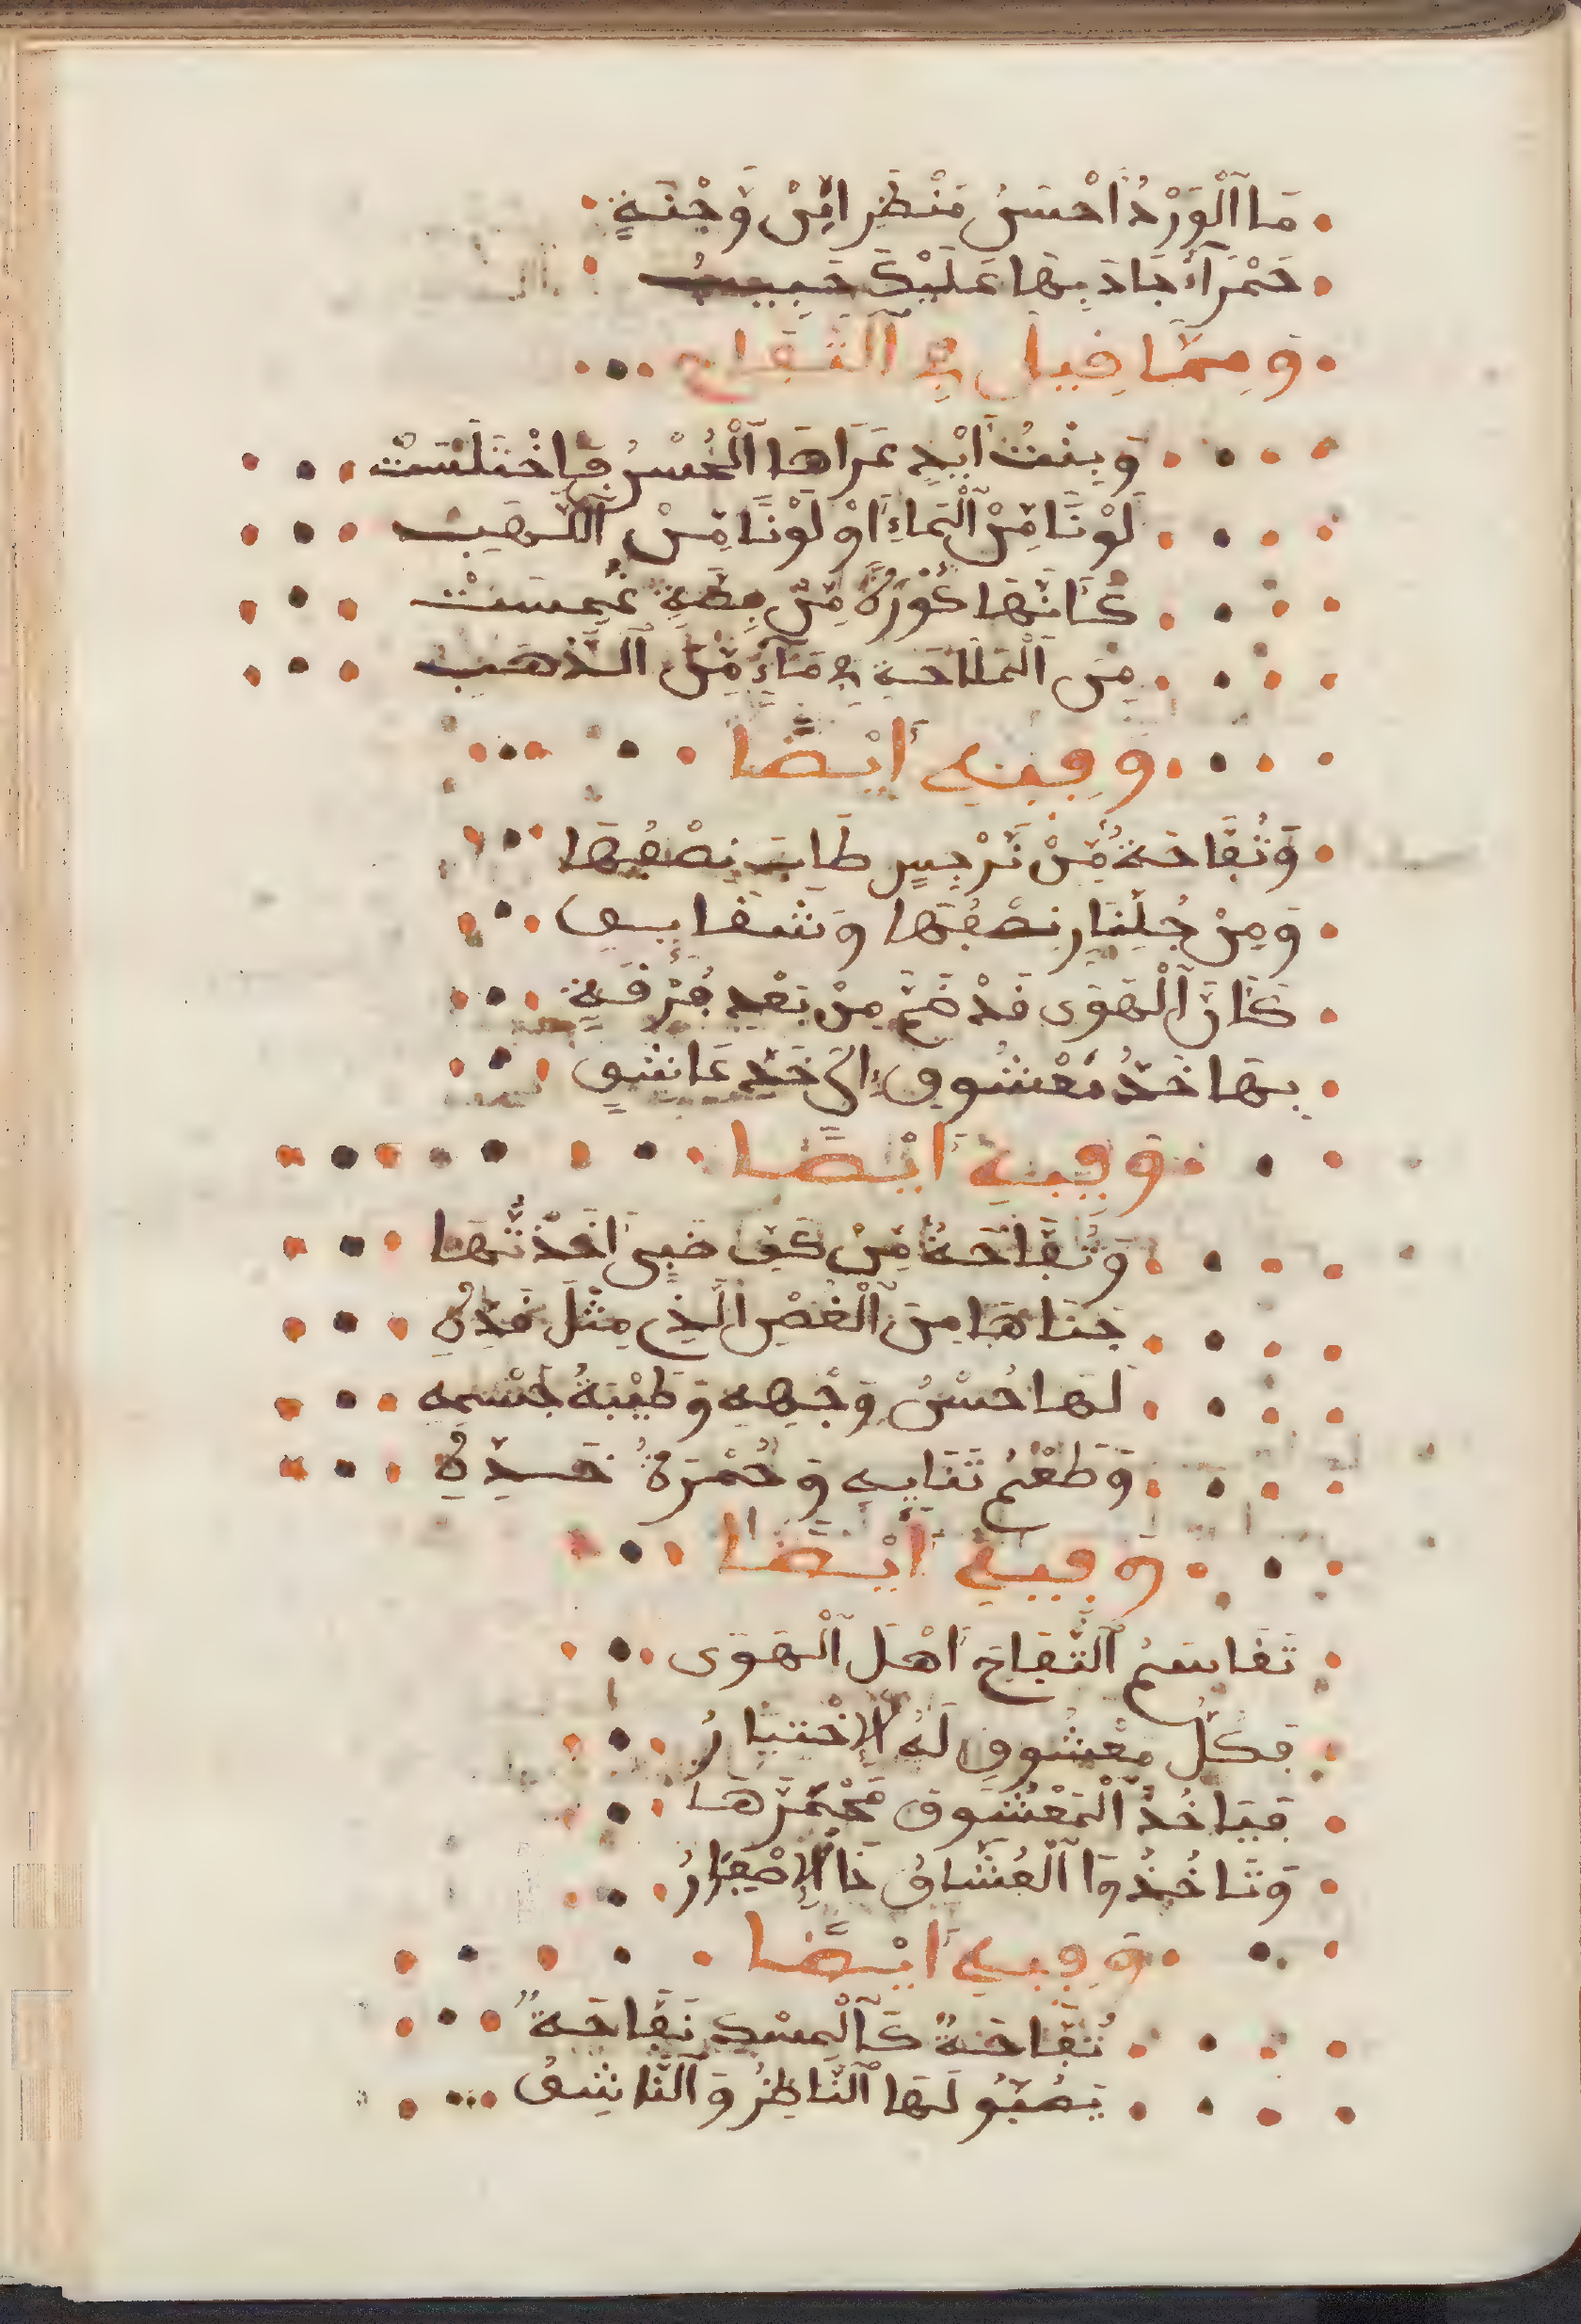 مَا اَلْوَرْدُ اَحْسَنُ مَنْظَرًا مِّنْ وَّجْنَةٍ
حَمْرَآءَ جَادَ بِهَا عَلَيْكَ حَبِيبُ
وَمِمَّا قِيلَ فِي اَلتُّفَّاحِ
وَبِنْتُ اَيْدٍ عَرَاهَا اَلْحُسْنُ فَاخْتَلَسَتْ
لَوْنًا مِّنَ اَلْمَاءِ اَوْ لَوْنًا مِّنَ اَللَّهَبِ
كَأَنَّهَا كُوْرَةٌ مِّن فِضَّةٍ غُمِسَتْ
مِنَ اَلْمَلَاحَةِ فِي مَآءٍ مِّنَ اَلذَّهَبِ
وَفِيهِ أَيْضًا
وَتُفَّاحَةٌ مِّنْ نَّرْجِسٍ طَابَ نِصْفُهَا
وَمِنْ جُلِّنَارٍ نِصْفُهَا وَشَقَايِقِ
كَأَنَّ اَلْهَوَى قَدْ ضَمَّ مِنْ بَعْدِ فُرْقَةٍ
بِهَا خَدُّ مَعْشُوقٍ اِلَى خَدِّ عَاشِقٍ
وَفِيهِ أَيْضًا
وَتُفَّاحَةٌ مِّنْ كَفِّ ظَبْيٍ اَخَذْتُّهَا
جَنَاهَا مِنَ اَلْغُصْنِ اَلَّذِي مِثْلَ قَدِّهِ
لَهَا حُسْنُ وَجْهِهِ وَطِيْبَةُ جِسْمِهِ
وَطَعْمُ ثَنَايِهِ وَحُمْرَةُ خَدِّهِ
وَفِيهِ أَيْضًا
تَقَاسَمُ اَلتُّفَّاحَ اَهْلَ اَلْهَوَى
فَكُلُّ مَعْشُوقٍ لَهُ اَلْاِخْتِيَارُ
فَيَاخُذُ اَلْمَعْشُوقُ مُحْمَرَّهَا
وَتَاخُذُوا اَلْعُشَّاقُ ذَا اَلْاِصْفِرَارُ
وَفِيهِ أَيْضًا
تُفَّاحَةٌ كَاَلْمِسْكِ نَفَّاحَةٌ
يَصْبُو لَهَا اَلنَّاظِرُ وَاَلنَّاشِقُ